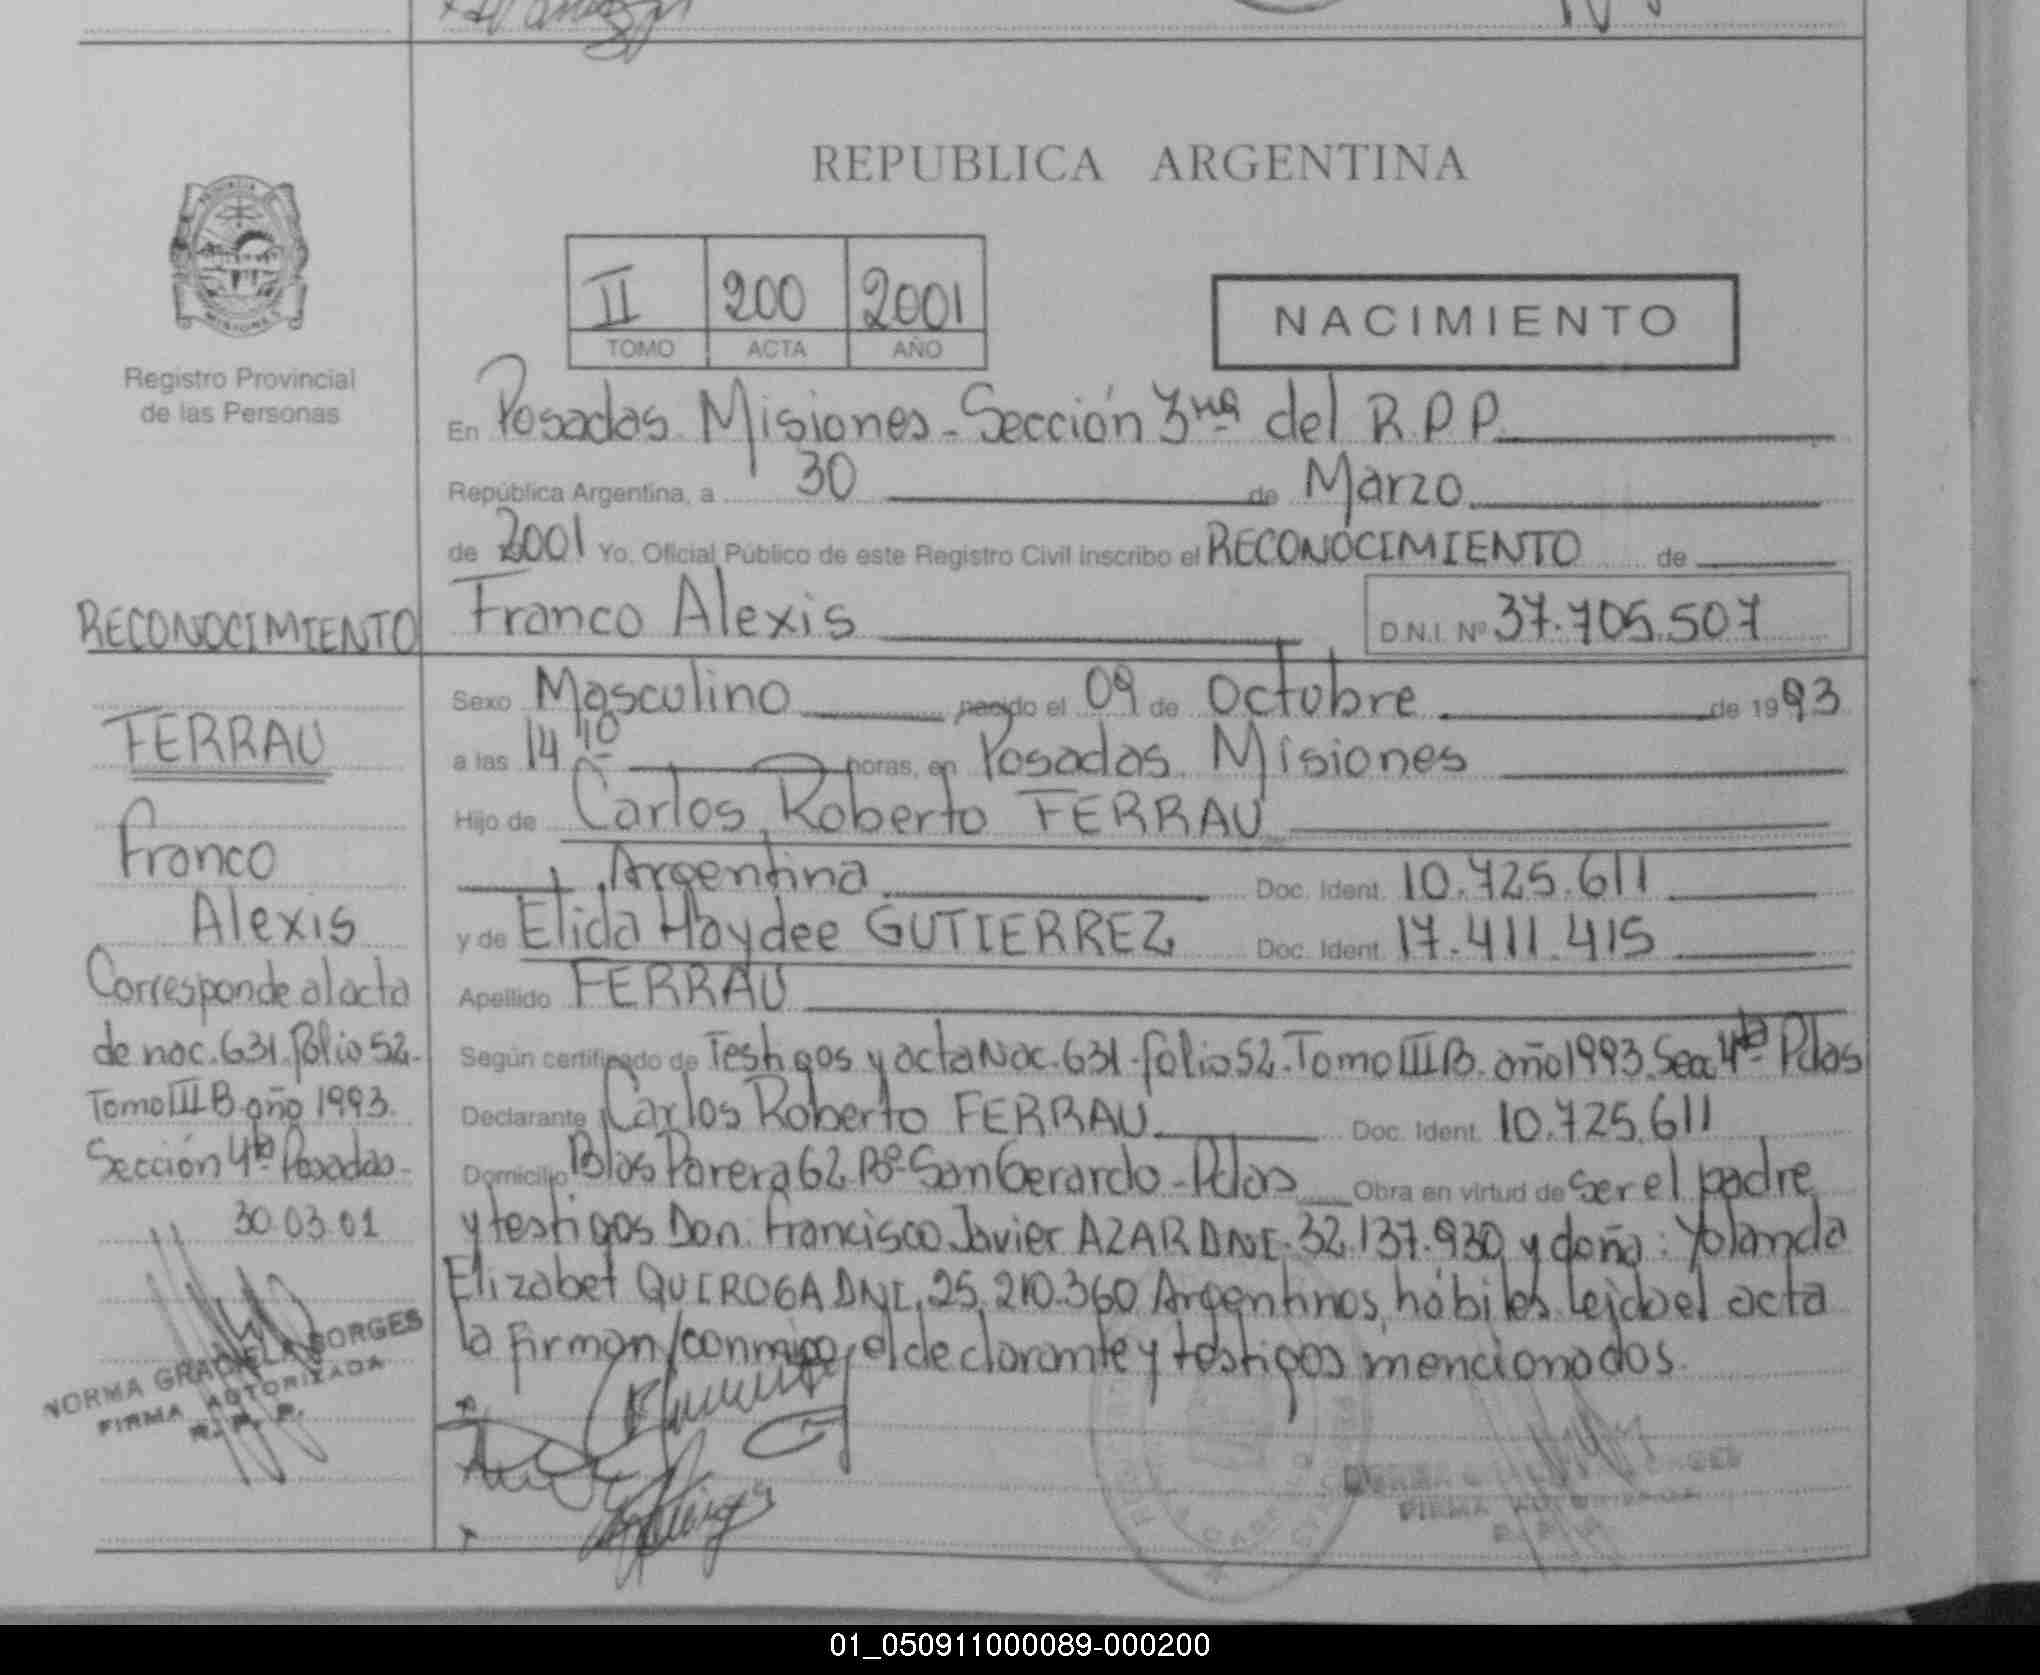 REPUBLICA ARGENTINA
II 200 2001
TOMO ACTA AÑO
NACIMIENTO
MISIONES
Registro Provincial
de las Personas
En Posadas Misiones - Sección 3ra del R.P.P.
República Argentina, a 30 de Marzo
de 2001 Yo, Oficial Público de este Registro Civil inscribo el RECONOCIMIENTO de
Franco Alexis D.N.I. Nº 37.705.507
Sexo Masculino nacido el 09 de Octubre de 1993
a las 14 10 horas, en Posadas. Misiones
Hijo de Carlos Roberto FERRAU
Argentina Doc. Ident. 10.725.611
y de Elida Haydee GUTIERREZ Doc. Ident. 17.411.415
Apellido FERRAU
Según certificado de Testigos y acta Nac. 631-folio 52. Tomo III B. año 1993. Secc. 4ta Pdas
Declarante Carlos Roberto FERRAU Doc. Ident. 10.725.611
Domicilio Blas Parera 62 Bº San Gerardo - Pdas Obra en virtud de ser el padre
y testigos Don: Francisco Javier AZAR DNI. 32.137.930 y doña: Yolanda
Elizabet QUIROGA DNI. 25.210.360 Argentinos, hábiles. Leida el acta
la firman conmigo, el declarante y testigos mencionados.
RECONOCIMIENTO
FERRAU
Franco
Alexis
Corresponde al acta
de nac. 631. folio 52.
Tomo III B. año 1993.
Sección 4ta Posadas.
30.03.01
NORMA GRACIELA BORGES
FIRMA AUTORIZADA
R. P. P.
FIRMA AUTORIZADA
01_050911000089-000200